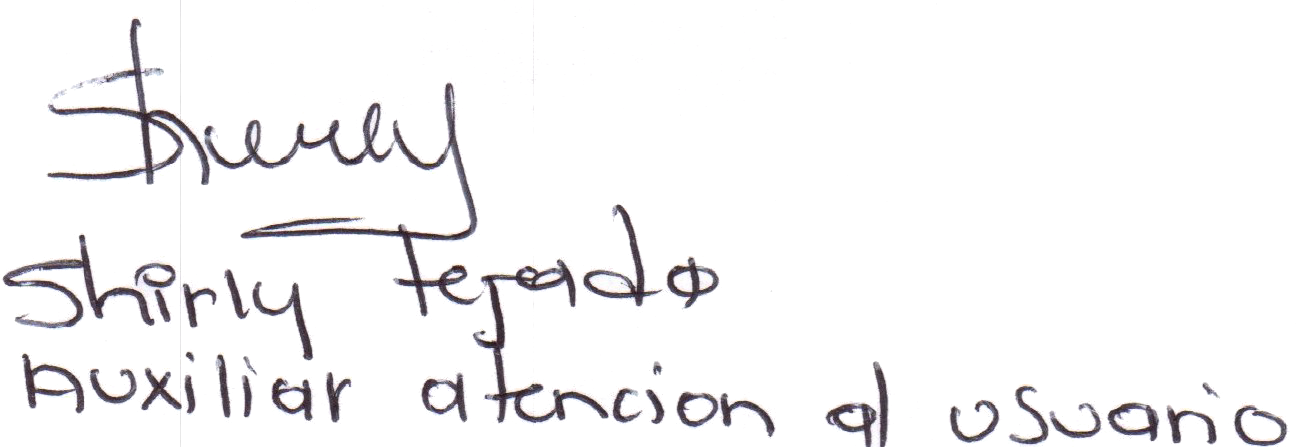 Shirly
Shirly tejado
Auxiliar atencion al usuario